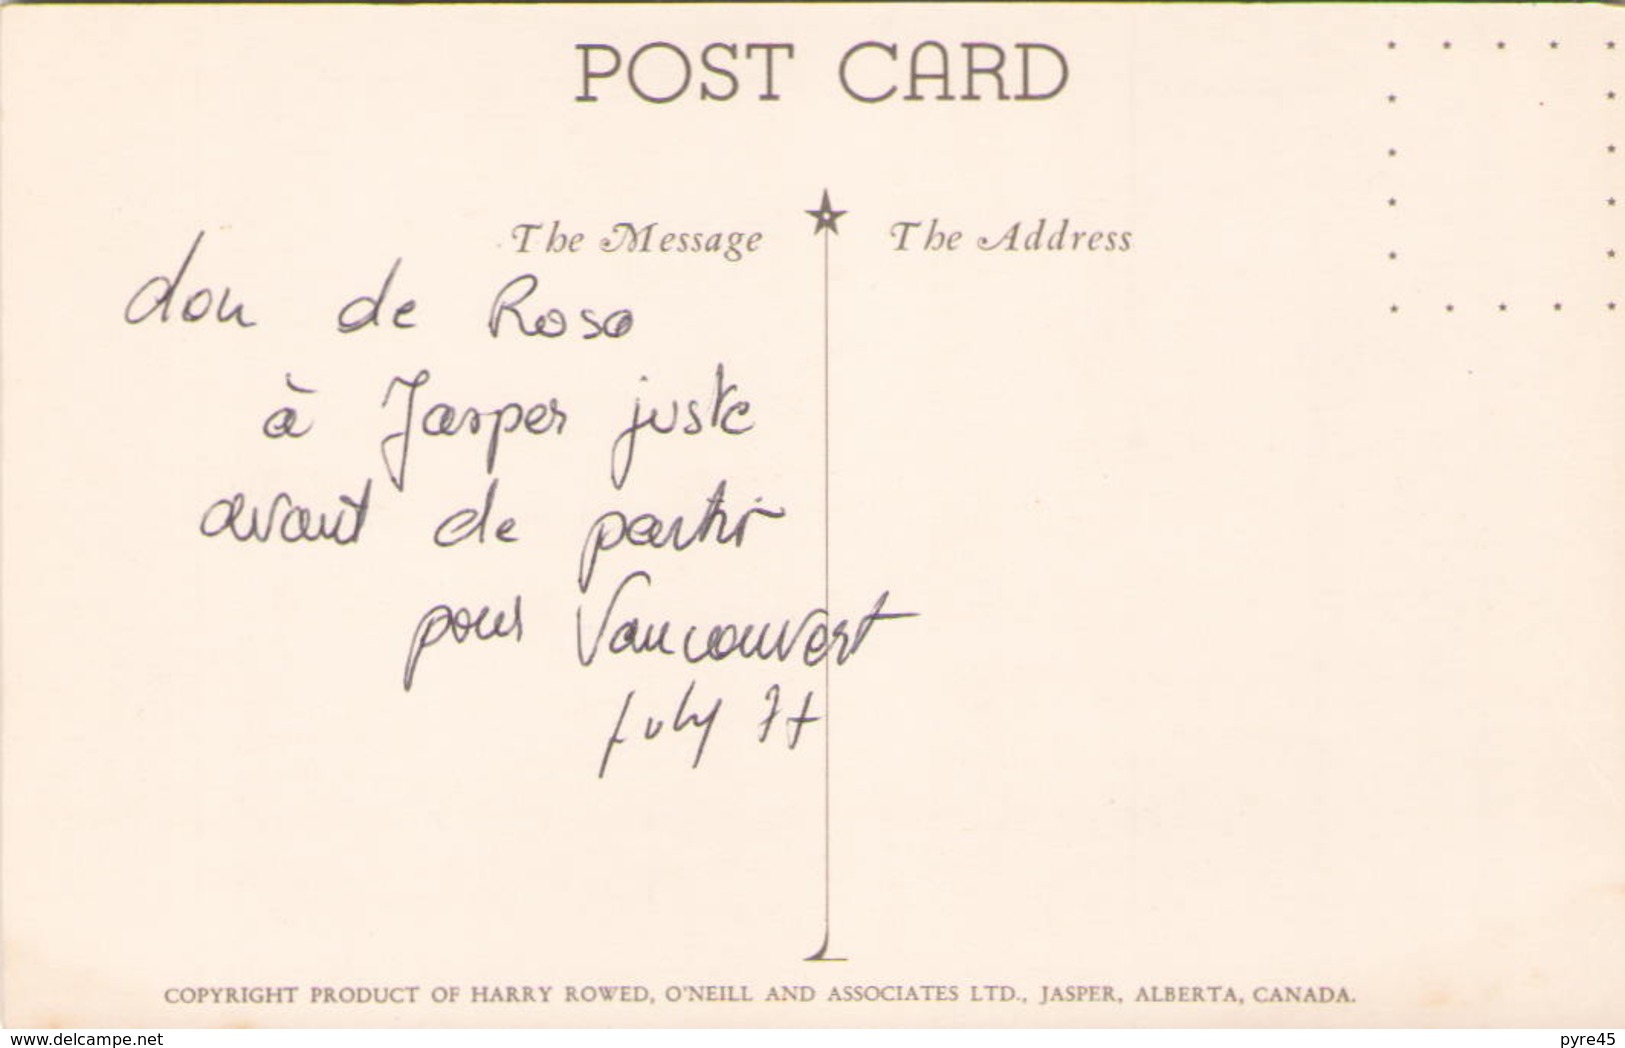 POST CARD
The Message
The Address
don de Rosa
à Jasper juste
avant de partir
pour Vancouvert
July 77
COPYRIGHT PRODUCT OF HARRY ROWED, O'NEILL AND ASSOCIATES LTD., JASPER, ALBERTA, CANADA.
www.delcampe.net
pyre45